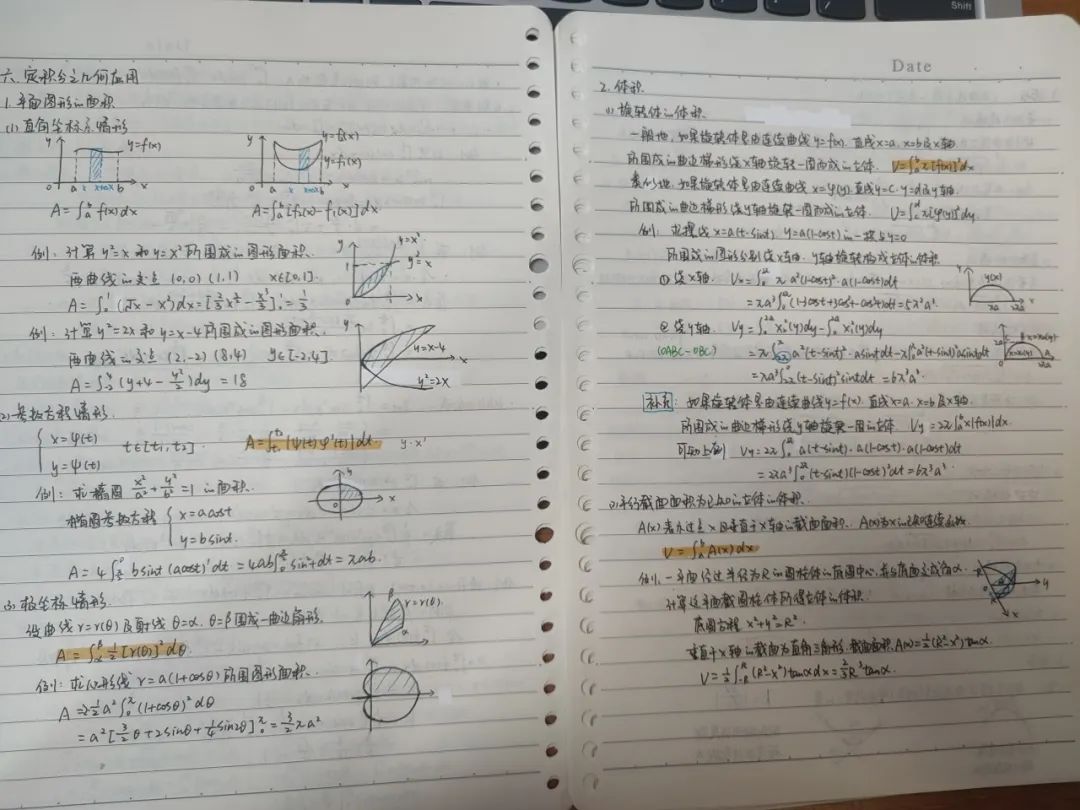 六、定积分之几何应用
1. 平面图形的面积
(1) 直角坐标系情形
y y=f(x) 0 a x x+Δx b x
y y=f₂(x) y=f₁(x) 0 a x x+Δx b x
A=∫ₐᵇ f(x)dx A=∫ₐᵇ[f₂(x)-f₁(x)]dx
例:计算y²=x和y=x²所围成的图形面积.
两曲线的交点 (0,0) (1,1) x∈[0,1].
A=∫₀¹(√x-x²)dx=[⅔x^(3/2)-x³/3]₀¹=⅓
y y=x² y²=x 1 0 1 x
例:计算y²=2x和y=x-4所围成的图形面积.
两曲线的交点 (2,-2) (8,4) y∈[-2,4].
A=∫₋₂⁴(y+4-y²/2)dy=18
y y=x-4 x y²=2x
(2) 参数方程情形.
{ x=φ(t)
y=ψ(t) t∈[t₁,t₂]. A=∫|ψ(t)φ'(t)|dt y·x'
例:求椭圆 x²/a²+y²/b²=1 的面积.
椭圆参数方程 { x=acost
y=bsint.
A=4∫_(π/2)^0 bsint(acost)'dt=4ab∫₀^(π/2)sin²tdt=πab.
y 0 x
(3) 极坐标情形.
设曲线r=r(θ)及射线θ=α,θ=β围成一曲边扇形.
A=∫_α^β ½[r(θ)]²dθ
β r=r(θ). α
例:求心形线r=a(1+cosθ)所围图形面积.
A=2·½a²∫₀^π(1+cosθ)²dθ
=a²[3/2θ+2sinθ+¼sin2θ]₀^π=3/2πa²
Shift
Date
2. 体积
(1) 旋转体的体积.
一般地,如果旋转体是由连续曲线y=f(x),直线x=a,x=b及x轴
所围成的曲边梯形绕x轴旋转一周而成的立体. V=∫ₐᵇπ[f(x)]²dx
类似地,如果旋转体是由连续曲线x=φ(y),直线y=c,y=d及y轴
所围成的曲边梯形绕y轴旋转一周而成的立体. V=∫_c^d π[φ(y)]²dy
例:求摆线x=a(t-sint),y=a(1-cost)的一拱与y=0
所围成的图形分别绕x轴、y轴旋转而成立体的体积
① 绕x轴. Vₓ=∫₀^(2π)π a²(1-cost)²·a(1-cost)dt
=πa³∫₀^(2π)(1-3cost+3cos²t-cos³t)dt=5π²a³.
y y(x) πa 2πa x
② 绕y轴. Vy=∫₀^(2a)πx₂²(y)dy-∫₀^(2a)πx₁²(y)dy
(OABC-OBC) =π∫_(2π)^π a²(t-sint)²·asintdt-π∫₀^π a²(t-sint)²asintdt
=-πa³∫₀^(2π)(t-sint)²sintdt=6π³a³.
补充: 如果旋转体是由连续曲线y=f(x).直线x=a、x=b及x轴
所围成的曲边梯形绕y轴旋转一周的立体. Vy=2π∫ₐᵇx|f(x)|dx.
Vy=2π∫₀^(2π)a(t-sint)·a(1-cost)·a(1-cost)dt
=2πa³∫₀^(2π)(t-sint)(1-cost)²dt=6π³a³.
(2) 平行截面面积为已知的立体的体积.
A(x)表示过点x且垂直于x轴的截面面积. A(x)为x的已知连续函数
V=∫ₐᵇA(x)dx
例:一平面经过半径为R的圆柱体的底圆中心,并与底面交成角α.
计算这平面截圆柱体所得立体的体积.
底圆方程 x²+y²=R².
垂直于x轴的截面为直角三角形.截面面积A(x)=½(R²-x²)tanα.
V=½∫₋R^R(R²-x²)tanαdx=⅔R³tanα.
y x